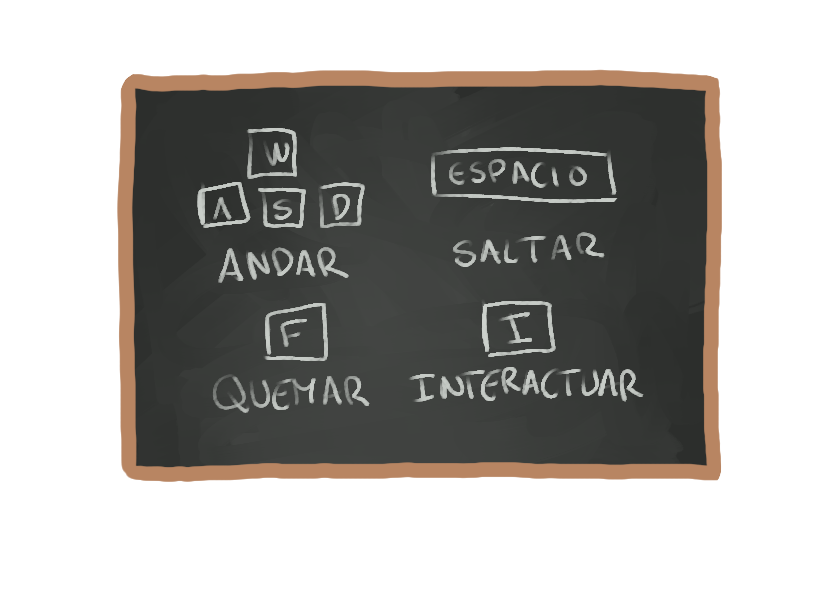 W
A S D
ANDAR
ESPACIO
SALTAR
F
QUEMAR
I
INTERACTUAR